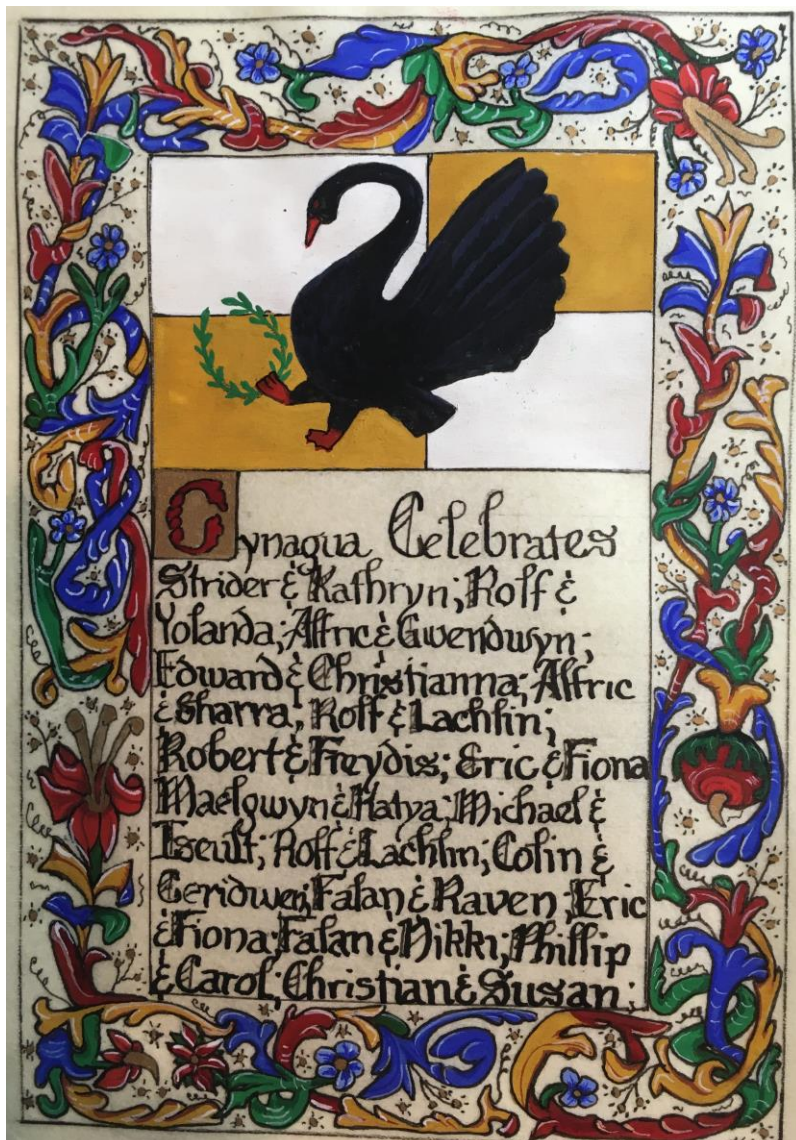 Cynagua Celebrates
Strider & Kathryn; Rolf &
Yolanda; Alfric & Gwendwyn;
Edward & Christianna; Alfric
& Sharra; Rolf & Lachlin;
Robert & Freydis; Eric & Fiona
Maelgwyn & Katya; Michael &
Iseult; Rolf & Lachlin; Colin &
Ceridwen; Falan & Raven; Eric
& Fiona; Falan & Nikki; Phillip
& Carol; Christian & Susan;